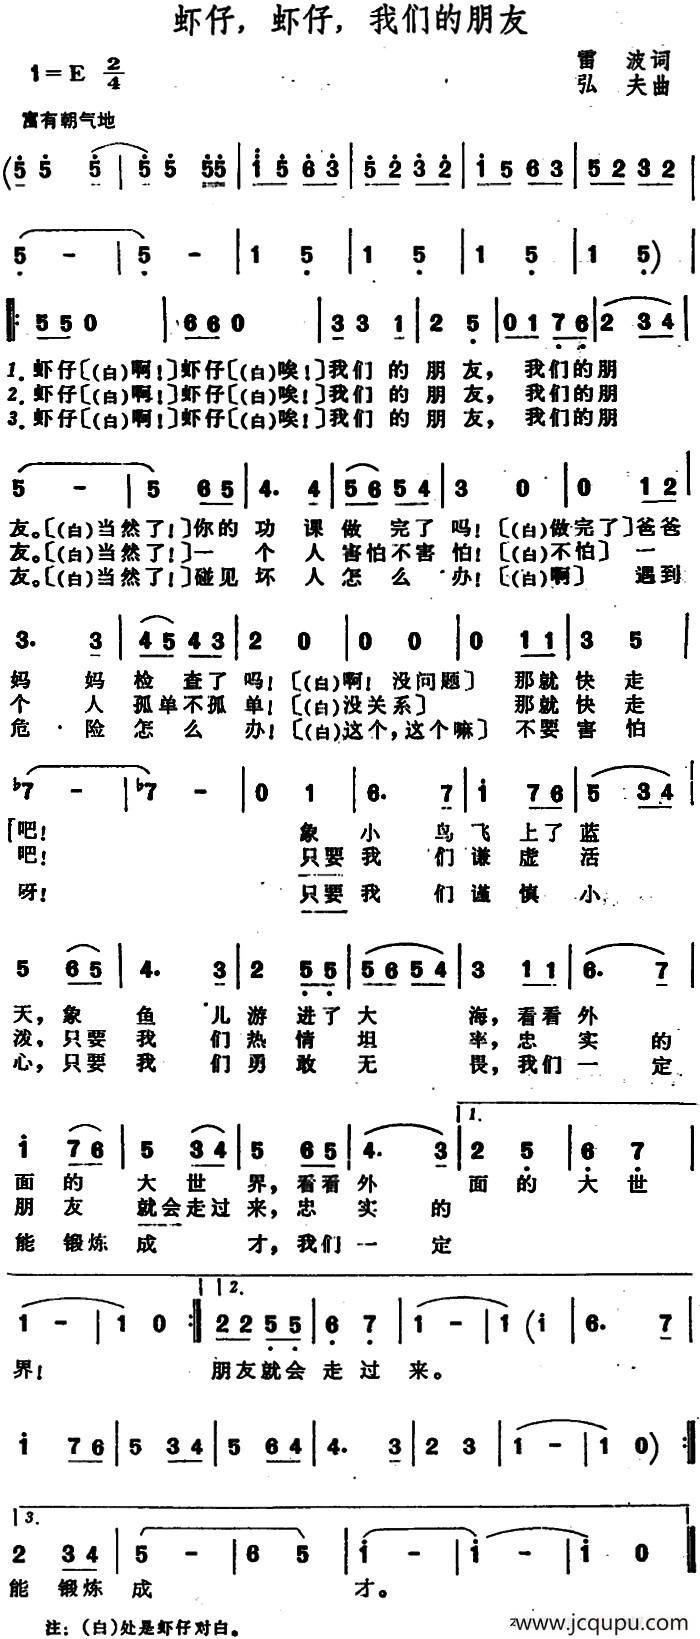 虾仔，虾仔，我们的朋友
1=E 2/4
雷 波词
弘 夫曲
富有朝气地
(5 5 5 - | 5 5 5 5 5 | 1 5 6 3 | 5 2 3 2 | 1 5 6 3 | 5 2 3 2 |
5 - | 5 - | 1 5 | 1 5 | 1 5 | 1 5) |
‖: 5 5 0 | 6 6 0 | 3 3 1 | 2 5 | 0 1 7 6 | 2 3 4 |
1. 虾仔〔(白)啊!〕虾仔〔(白)唉!〕我们 的 朋 友， 我们的朋
2. 虾仔〔(白)啊!〕虾仔〔(白)唉!〕我们 的 朋 友， 我们的朋
3. 虾仔〔(白)啊!〕虾仔〔(白)唉!〕我们 的 朋 友， 我们的朋
5 - | 5 6 5 | 4. 4 | 5 6 5 4 | 3 0 | 0 1 2 |
友。〔(白)当然了!〕你的 功 课 做 完了 吗!〔(白)做完了〕爸爸
友。〔(白)当然了!〕一 个 人 害怕不害 怕!〔(白)不怕〕 一
友。〔(白)当然了!〕碰见 坏 人 怎 么 办!〔(白)啊〕 遇到
3. 3 | 4 5 4 3 | 2 0 | 0 0 | 0 1 1 | 3 5 |
妈 妈 检 查了 吗!〔(白)啊! 没问题〕 那就 快 走
个 人 孤单不孤 单!〔(白)没关系〕 那就 快 走
危 · 险 怎 么 办!〔(白)这个，这个嘛〕 不要 害 怕
♭7 - | ♭7 - | 0 1 | 6. 7 | i 7 6 | 5 3 4 |
吧! 象 小 鸟 飞 上了 蓝
吧! 只要 我 们 谦 虚 活
呀! 只要 我 们 谨 慎 小
5 6 5 | 4. 3 | 2 5 5 | 5 6 5 4 | 3 1 1 | 6. 7 |
天，象 鱼 儿 游 进了 大 海，看看 外
泼，只要 我 们 热 情 坦 率，忠 实 的
心，只要 我 们 勇 敢 无 畏，我们 一 定
i 7 6 | 5 3 4 | 5 6 5 | 4. 3 | 1. 2 5 | 6 7 |
面 的 大 世 界，看看 外 面 的 大 世
朋 友 就会走过 来，忠 实 的
能 锻炼 成 才，我们 一 定
1 - | 1 0 :‖ 2. 2 2 5 5 | 6 7 | 1 - | 1 (i | 6. 7 |
界! 朋友就会 走 过 来。
i 7 6 | 5 3 4 | 5 6 4 | 4. 3 | 2 3 | 1 - | 1 0) :‖
3.
2 3 4 | 5 - | 6 5 | i - | i - | i 0 ‖
能 锻炼 成 才。
注：(白)处是虾仔对白。
www.jcqupu.com